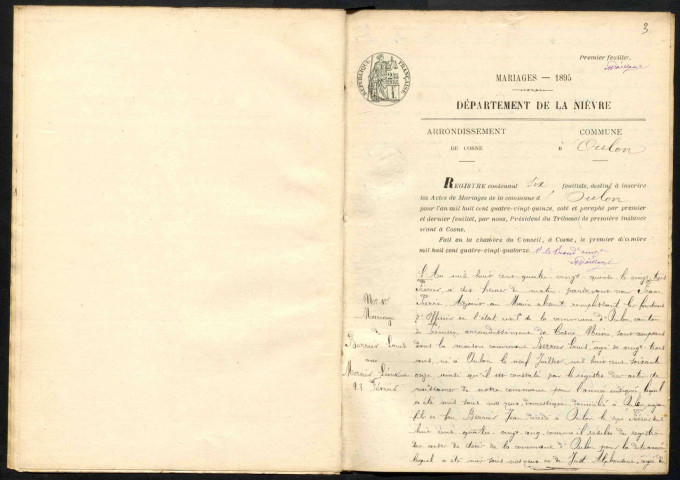 3
Premier feuillet.
RÉPUBLIQUE FRANÇAISE
MARIAGES — 1895
DÉPARTEMENT DE LA NIÈVRE
ARRONDISSEMENT
DE COSNE
COMMUNE
d' Oulon
REGISTRE contenant six feuillets, destiné à inscrire
les Actes de Mariages de la commune d' Oulon
pour l'an mil huit cent quatre-vingt-quinze, coté et paraphé par premier
et dernier feuillet, par nous, Président du Tribunal de première instance
séant à Cosne.
Fait en la chambre du Conseil, à Cosne, le premier décembre
mil huit cent quatre-vingt-quatorze
No 1er
Mariage
Berrier Louis
23 Février
L'An mil huit cent quatre vingt quinze le vingt trois
Février à dix heures du matin, pardevant nous Jean
Adjoint au Maire remplissant les fonctions
d'Officier de l'état civil de la commune d'Oulon, canton
de Prémery, arrondissement de Cosne, Nièvre, sont comparus
dans la maison commune Berrier Louis, âgé de vingt trois
ans, né à Oulon le neuf Juillet mil huit cent soixante
onze ainsi qu'il est constaté par le registre des actes de
naissances de notre commune pour l'année indiquée, lequel
a été mis sous nos yeux, domestique, domicilié à Oulon
fils de feu Berrier Jean décédé à Oulon le
huit cent quatre-vingt cinq, comme il résulte du registre
des actes de décès de la commune d'Oulon pour la dite année
lequel a été mis sous nos yeux et de